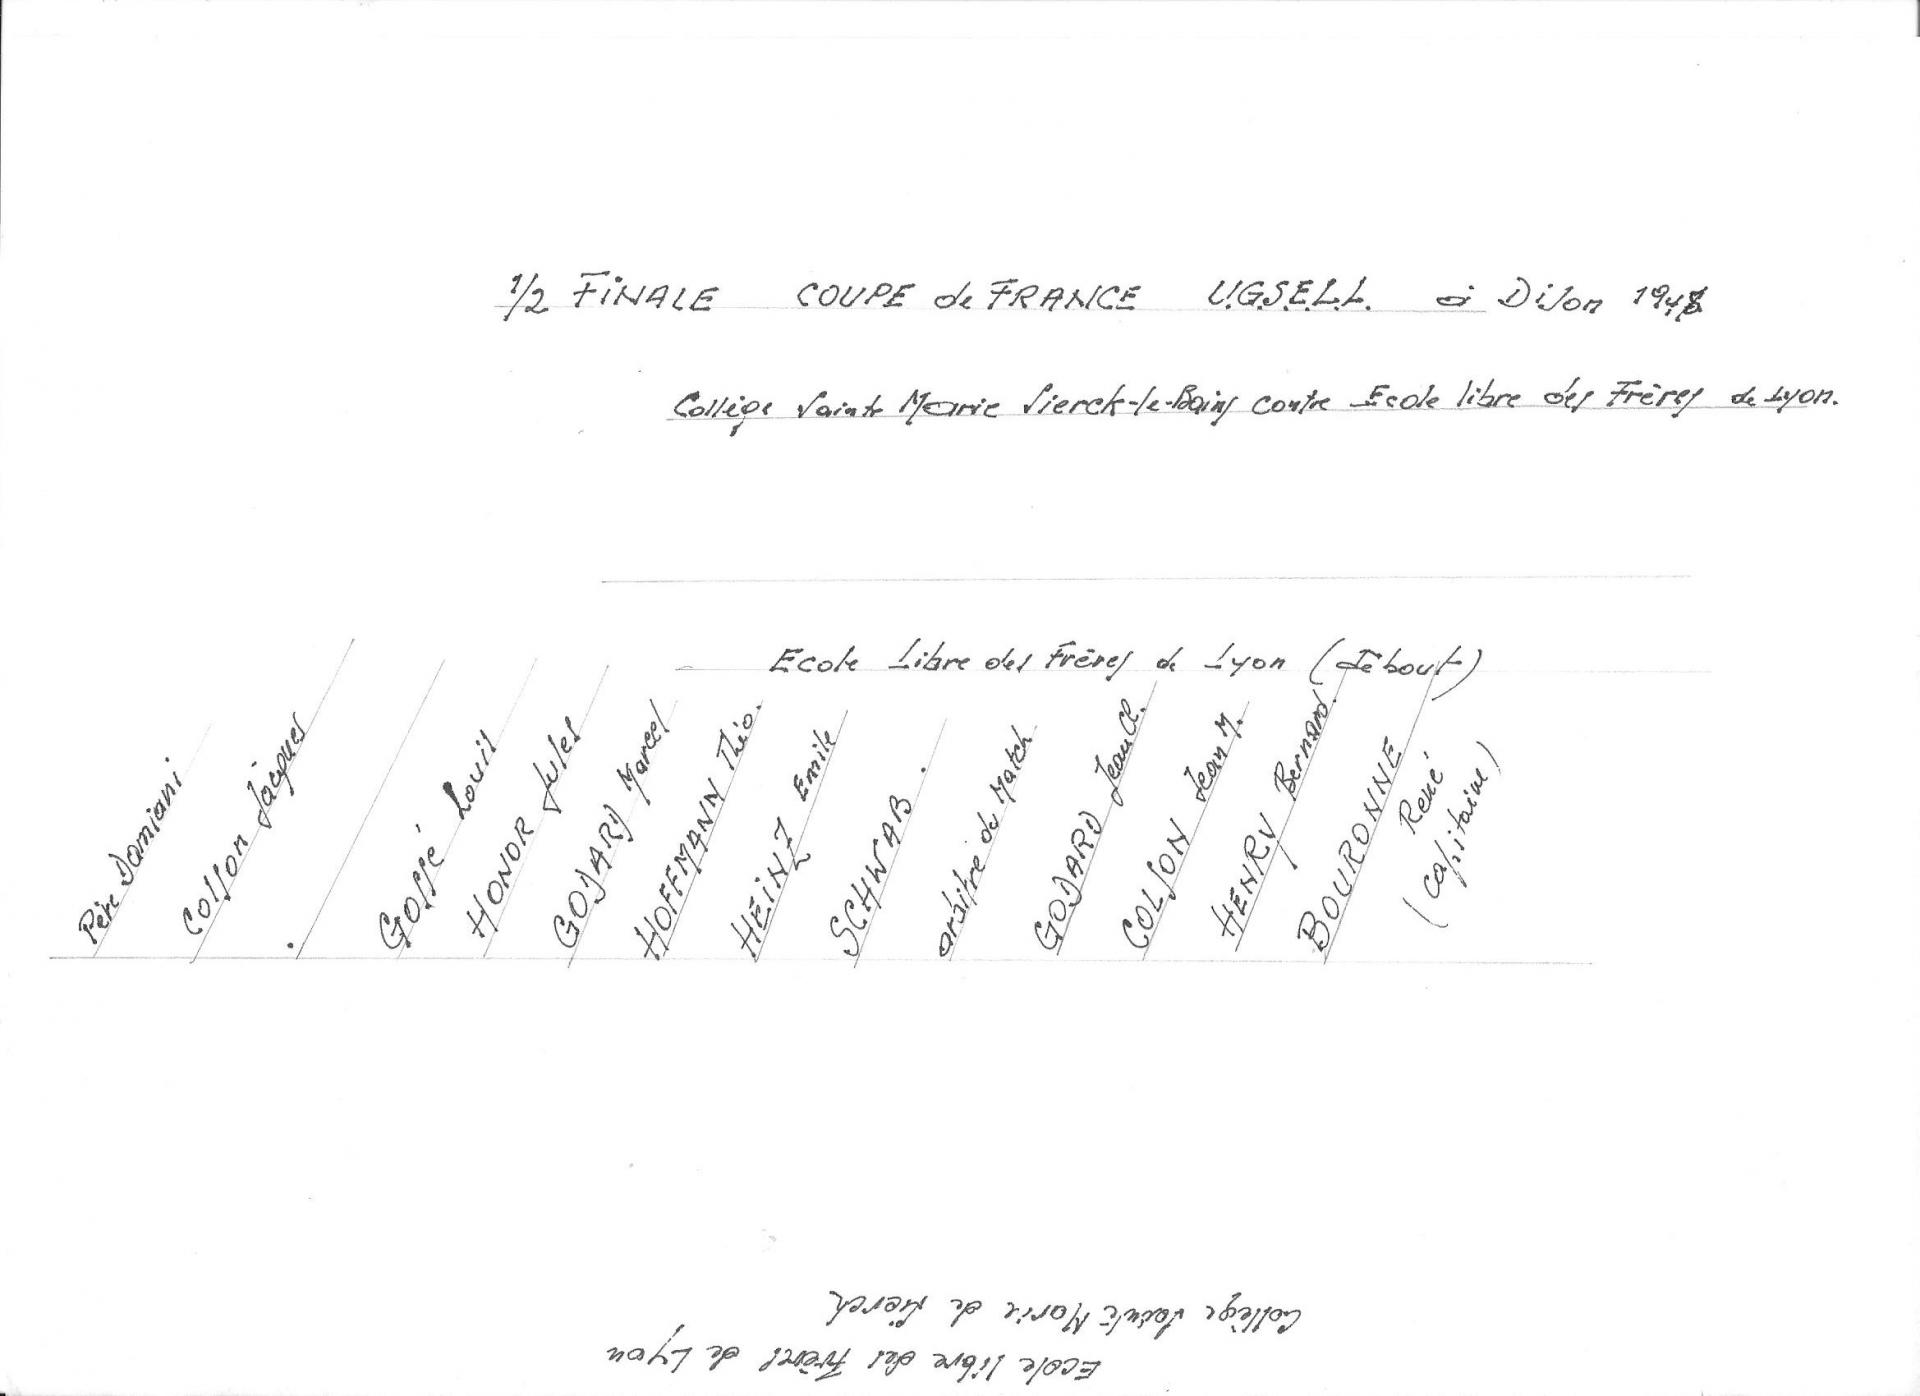 1/2 FINALE COUPE de FRANCE U.G.S.E.L.L. à Dijon
Collège Sainte Marie Sierck-le-Bains contre Ecole libre des Frères de Lyon.
Ecole Libre des Frères de Lyon (débout)
Père Damiani
Colson Jacques
.
Gossé Louis
HONOR Jules
GODARD Marcel
HOFFMANN Théo.
HEINZ Emile
SCHWAB .
arbitre du Match
GODARD Jean Cl.
COLSON Jean M.
HENRY Bernard
BOURONNE René (capitaine)
Collège Sainte Marie de Sierck
Ecole libre des Frères de Lyon